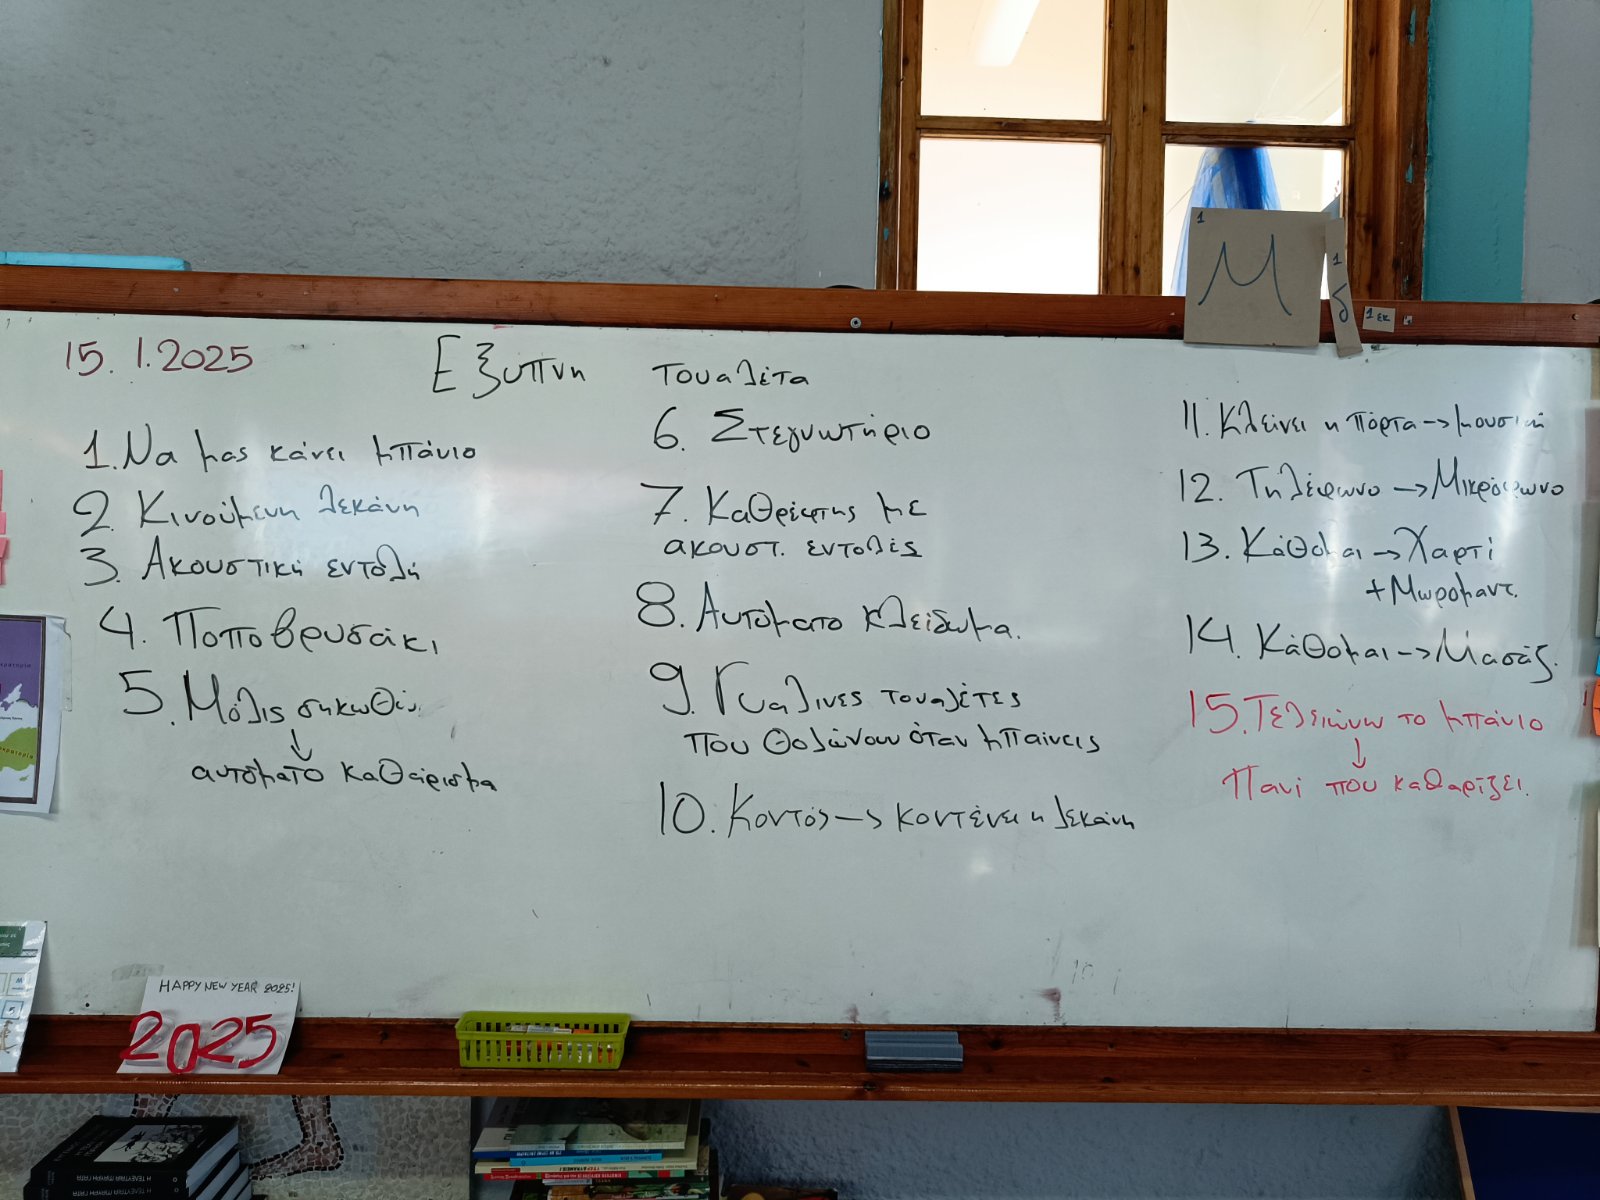 15.1.2025
Εξυπνη τουαλέτα
1. Να μας κάνει μπάνιο
2. Κινούμενη λεκάνη
3. Ακουστική εντολή
4. Ποποβρυσάκι
5. Μόλις σηκωθείς
↓
αυτόματο καθάρισμα
6. Στεγνωτήριο
7. Καθρέφτης με
ακουστ. εντολές
8. Αυτόματο κλείδωμα.
9. Γυάλινες τουαλέτες
που θολώνουν όταν μπαίνεις
10. Κοντός → κονταίνει η λεκάνη
11. Κλείνει η πόρτα → μουσική
12. Τηλέφωνο → Μικρόφωνο
13. Κάθομαι → Χαρτί
+ Μωρομαντ.
14. Κάθομαι → Μασάζ.
15. Τελειώνω το μπάνιο
↓
Πανί που καθαρίζει.
1
Μ
1
δ
1 εκ
HAPPY NEW YEAR 2025!
2025